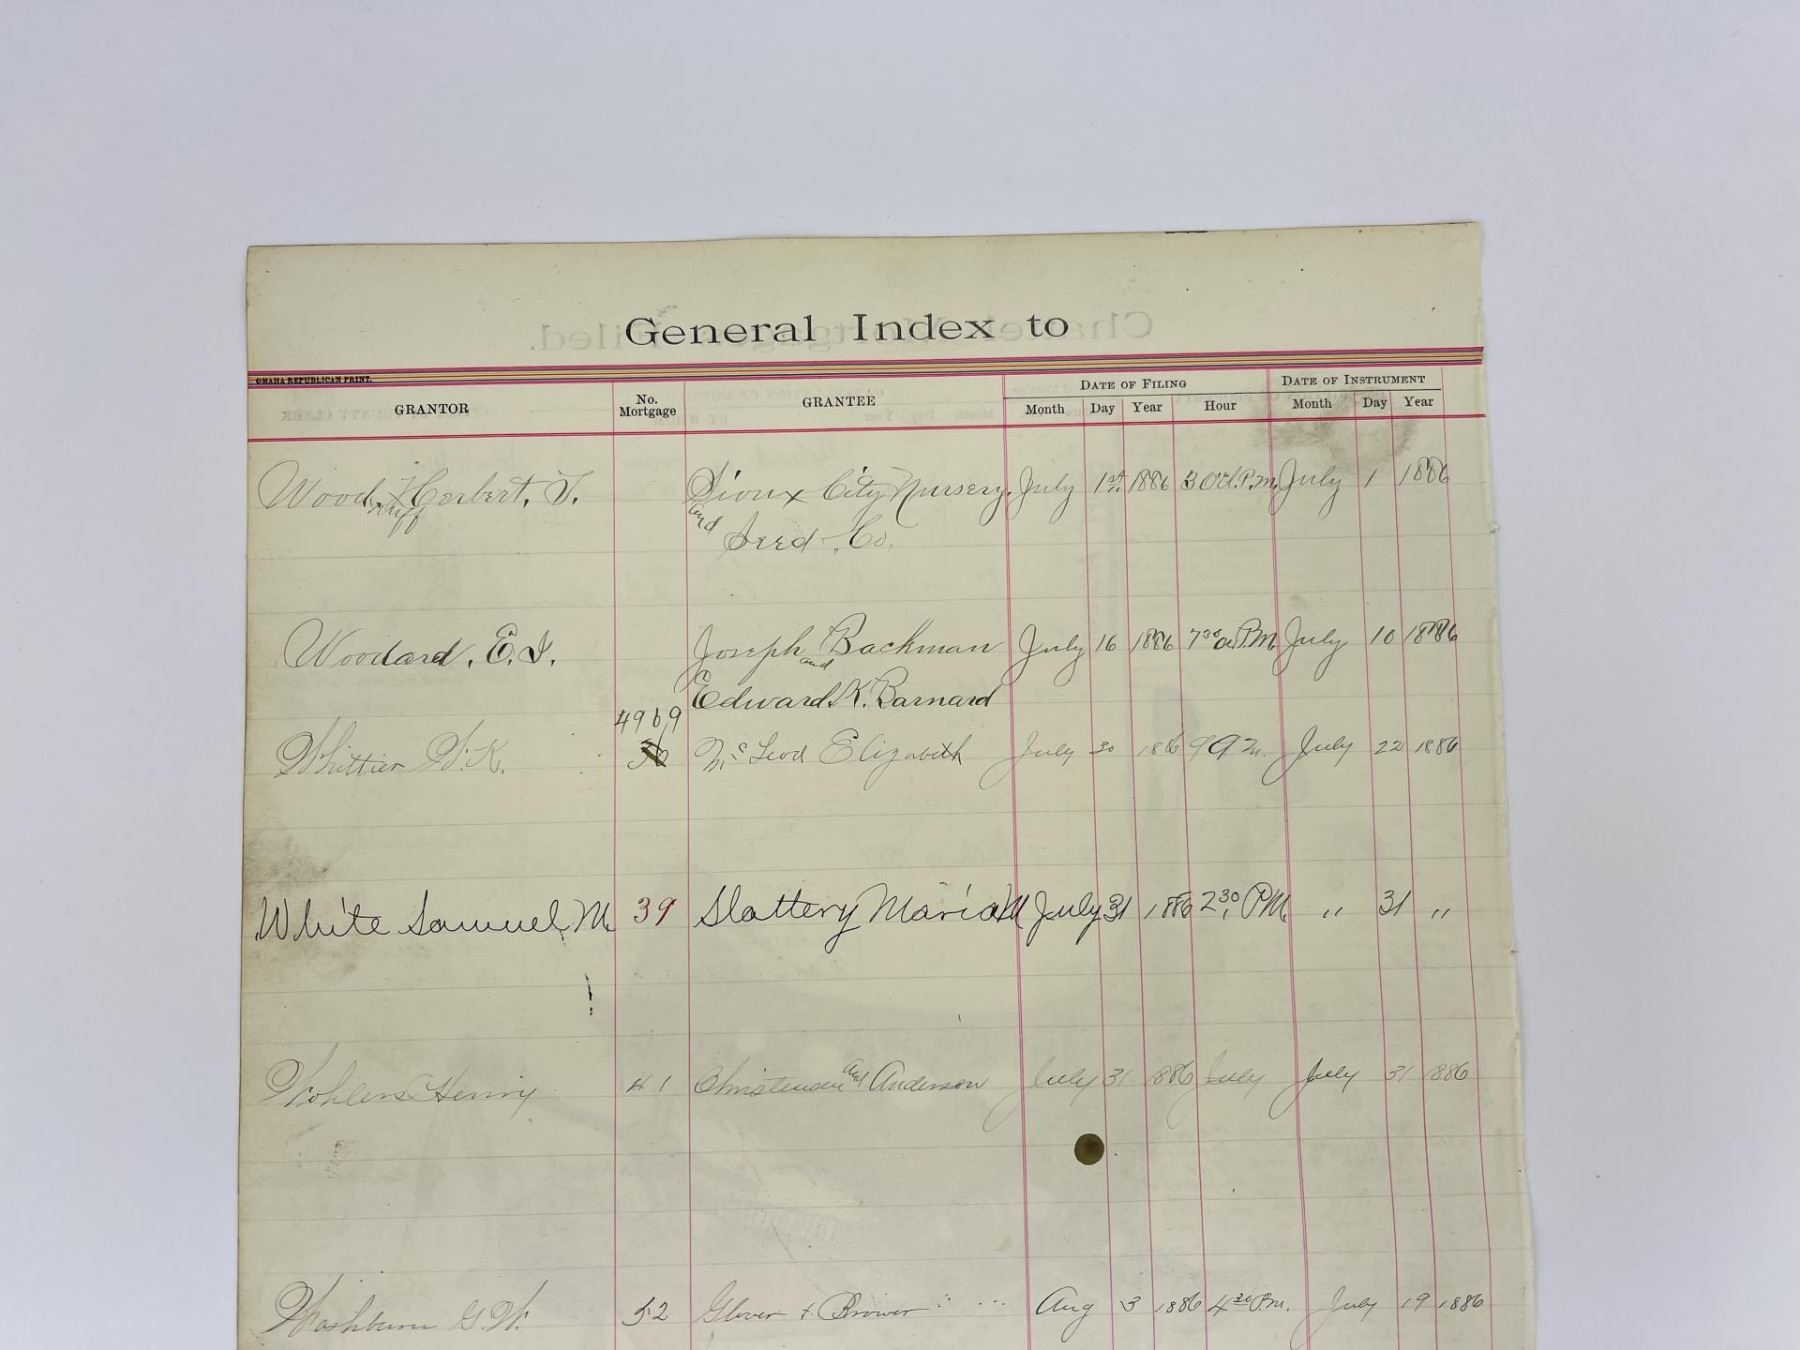 General Index to
OMAHA REPUBLICAN PRINT.
GRANTOR No. Mortgage GRANTEE DATE OF FILING DATE OF INSTRUMENT
Month Day Year Hour Month Day Year
Wood, Herbert, T. Sioux City Nursery July 1st 1886 3 P.M. July 1 1886
and Seed Co.
Woodard, E. I. Joseph Backman July 16 1886 7 30 P.M. July 10 1886
and
Edward K. Barnard
4969
Whittier W. K. 36 Mc Leod Elizabeth July 30 1886 9 July 22 1886
White Samuel M. 39 Slattery Maria July 31 1886 2 30 P.M. " 31 "
Wohlers Henry 41 Christensen and Anderson July 31 1886 July July 31 1886
Washburn G. W. 52 Glover & Brower Aug 3 1886 4 30 P.m. July 19 1886